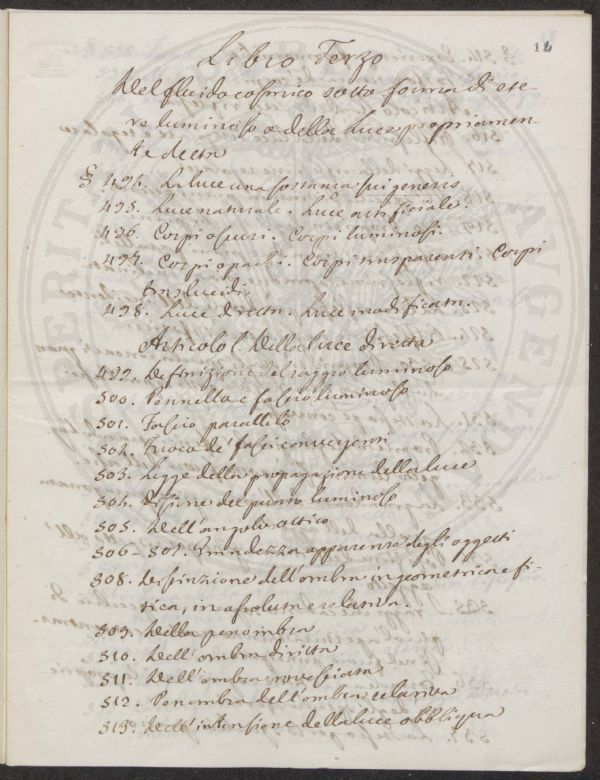 12
Libro Terzo
Del fluido cosmico sotto forma di ete-
re luminoso e della Luce propriamen-
te detta
§ 494. La luce una sostanza sui generis
495. Luce naturale. Luce artificiale.
496. Corpi oscuri. Corpi luminosi.
497. Corpi opachi. Corpi trasparenti. Corpi
translucidi.
498. Luce diretta. Luce modificata.
Articolo I. Della luce diretta
499. Definizione del raggio luminoso
500. Pennello e fascio luminoso
501. Fascio parallelo
502. Fuoco de' fasci convergenti
503. Legge della propagazione della luce
504. Visione del punto luminoso
505. Dell'angolo ottico
506-507. Grandezza apparente degli oggetti
508. Distinzione dell'ombra in geometrica e fi-
sica, in assoluta e relativa.
509. Della penombra
510. Dell'ombra diritta
511. Dell'ombra rovesciata
512. Penombra dell'ombra relativa
513. Dell'intensione della luce obbliqua